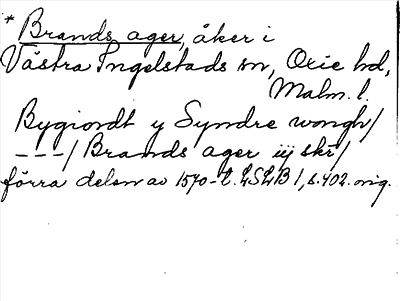 * Brands ager, åker i
Västra Ingelstads sn, Oxie hd,
Malm. l.
Bygiordt y Syndre wongh/
---/ Brands ager iij skr/
förra delen av 1570-t. LSLB 1, s. 402. orig.